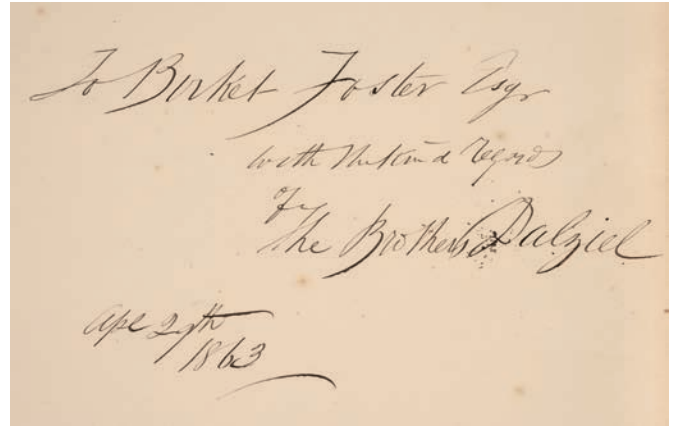 To Birket Foster Esqr
with the kind regards
of
The Brothers Dalziel
Apl 29th
1863